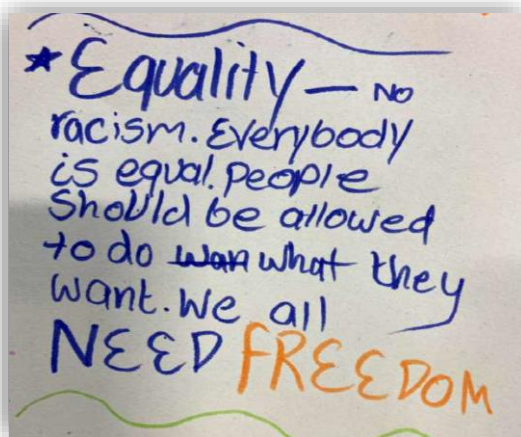 ★Equality — No
racism. Everybody
is equal. People
Should be allowed
to do wan what they
want. We all
NEED FREEDOM